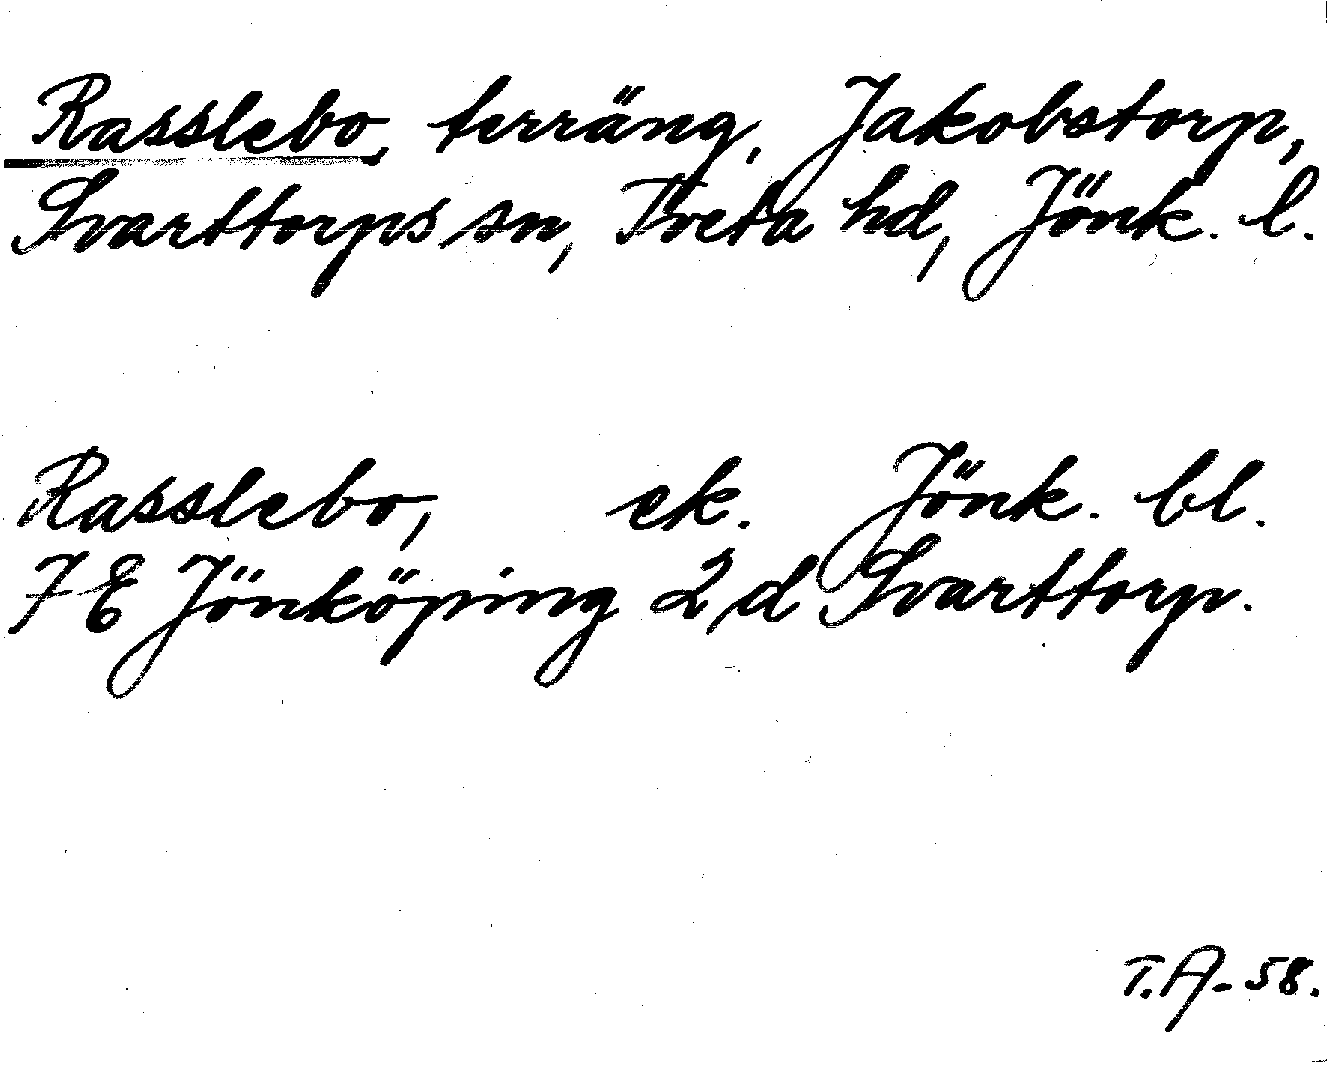 Rasslebo, terräng, Jakobstorp,
Svarttorps sn, Tveta hd, Jönk. l.
Rasslebo, ek. Jönk. bl.
7 E Jönköping 2 d Svarttorp.
T.A-58.